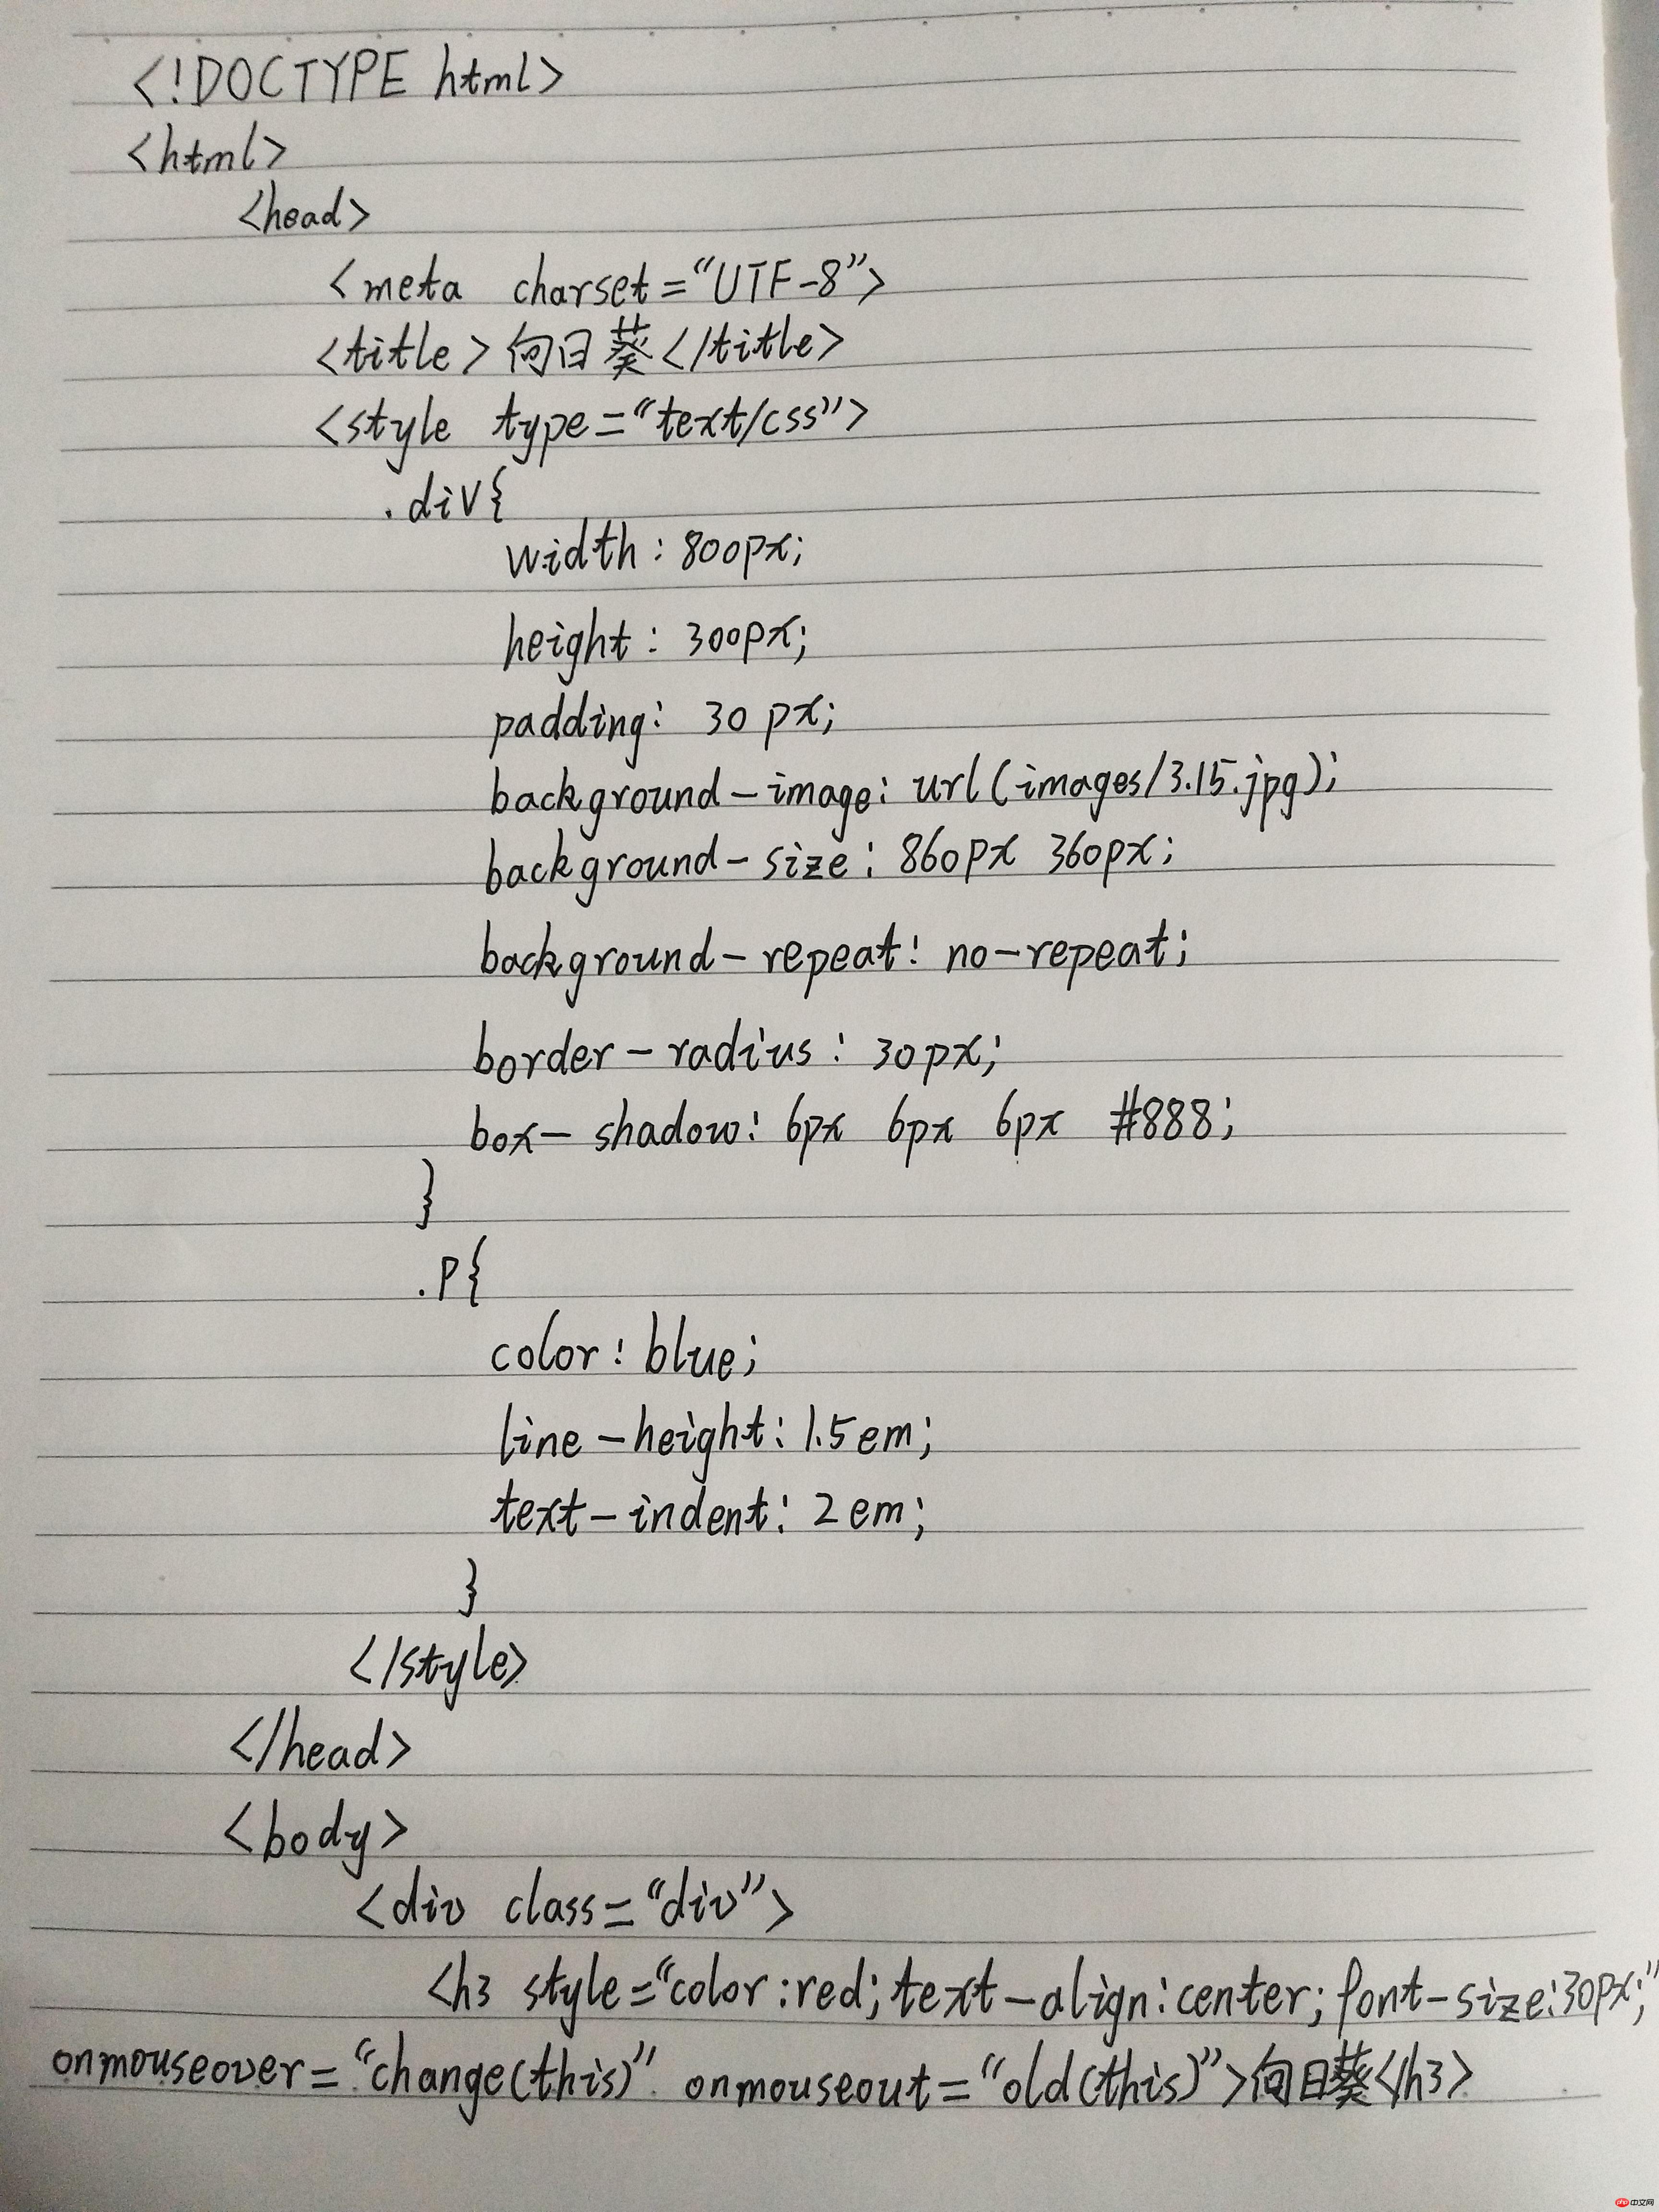 <!DOCTYPE html>
<html>
<head>
<meta charset="UTF-8">
<title>向日葵</title>
<style type="text/css">
.div{
width:800px;
height:300px;
padding:30px;
background-image:url(images/3.15.jpg);
background-size:860px 360px;
background-repeat:no-repeat;
border-radius:30px;
box-shadow:6px 6px 6px #888;
}
.p{
color:blue;
line-height:1.5em;
text-indent:2em;
}
</style>
</head>
<body>
<div class="div">
<h3 style="color:red;text-align:center;font-size:30px;"
onmouseover="change(this)" onmouseout="old(this)">向日葵</h3>
php 中文网